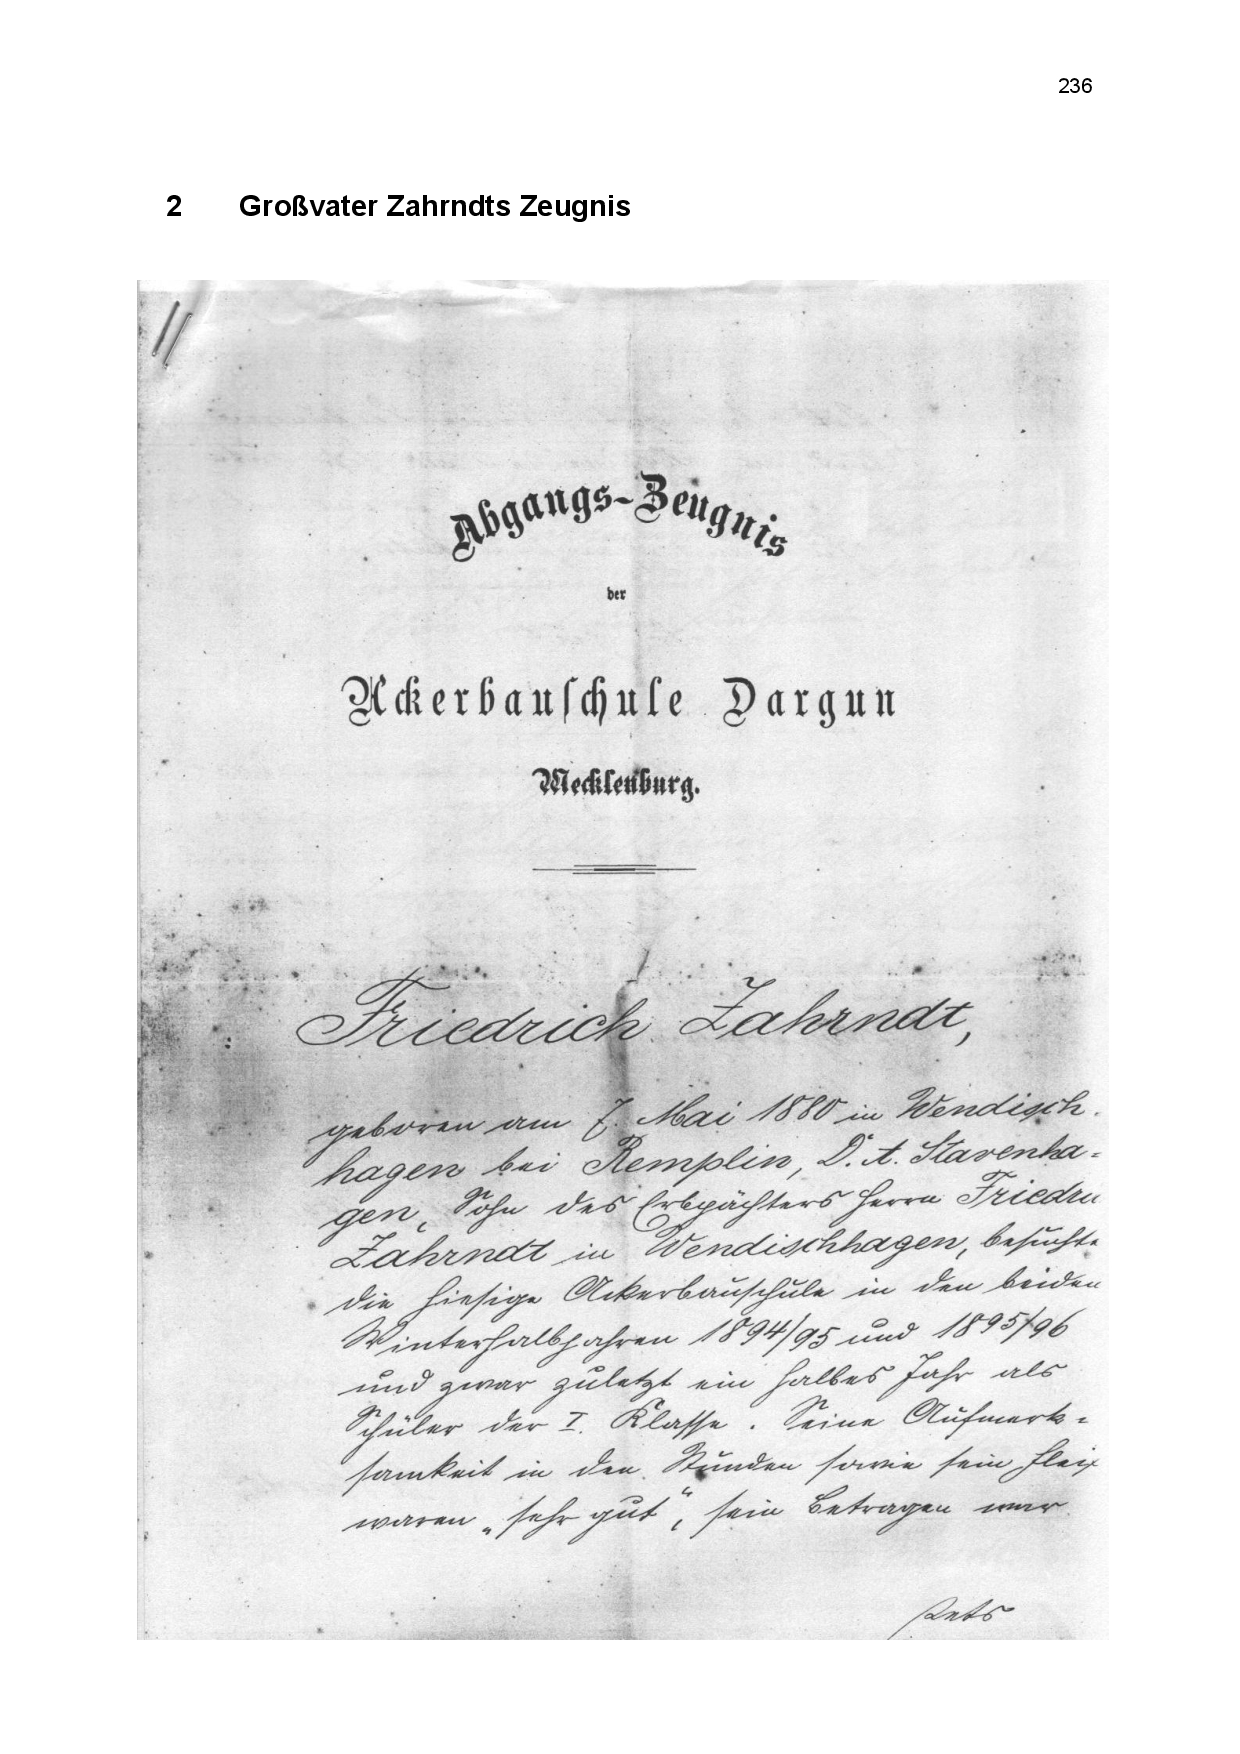 236
2 Großvater Zahrndts Zeugnis
Abgangs-Zeugnis
der
Ackerbauschule Dargun
Mecklenburg.
Friedrich Zahrndt,
geboren am 7. Mai 1880 in Wendisch-
hagen bei Remplin, D. A. Stavenha-
gen, Sohn des Erbpächters Herrn Friedri
Zahrndt in Wendischhagen, besuchte
die hiesige Ackerbauschule in den beiden
Winterhalbjahren 1894/95 und 1895/96
und zwar zuletzt ein halbes Jahr als
Schüler der I. Klasse. Seine Aufmerk-
samkeit in den Stunden sowie sein Fleiß
waren „sehr gut“, sein Betragen war
stets